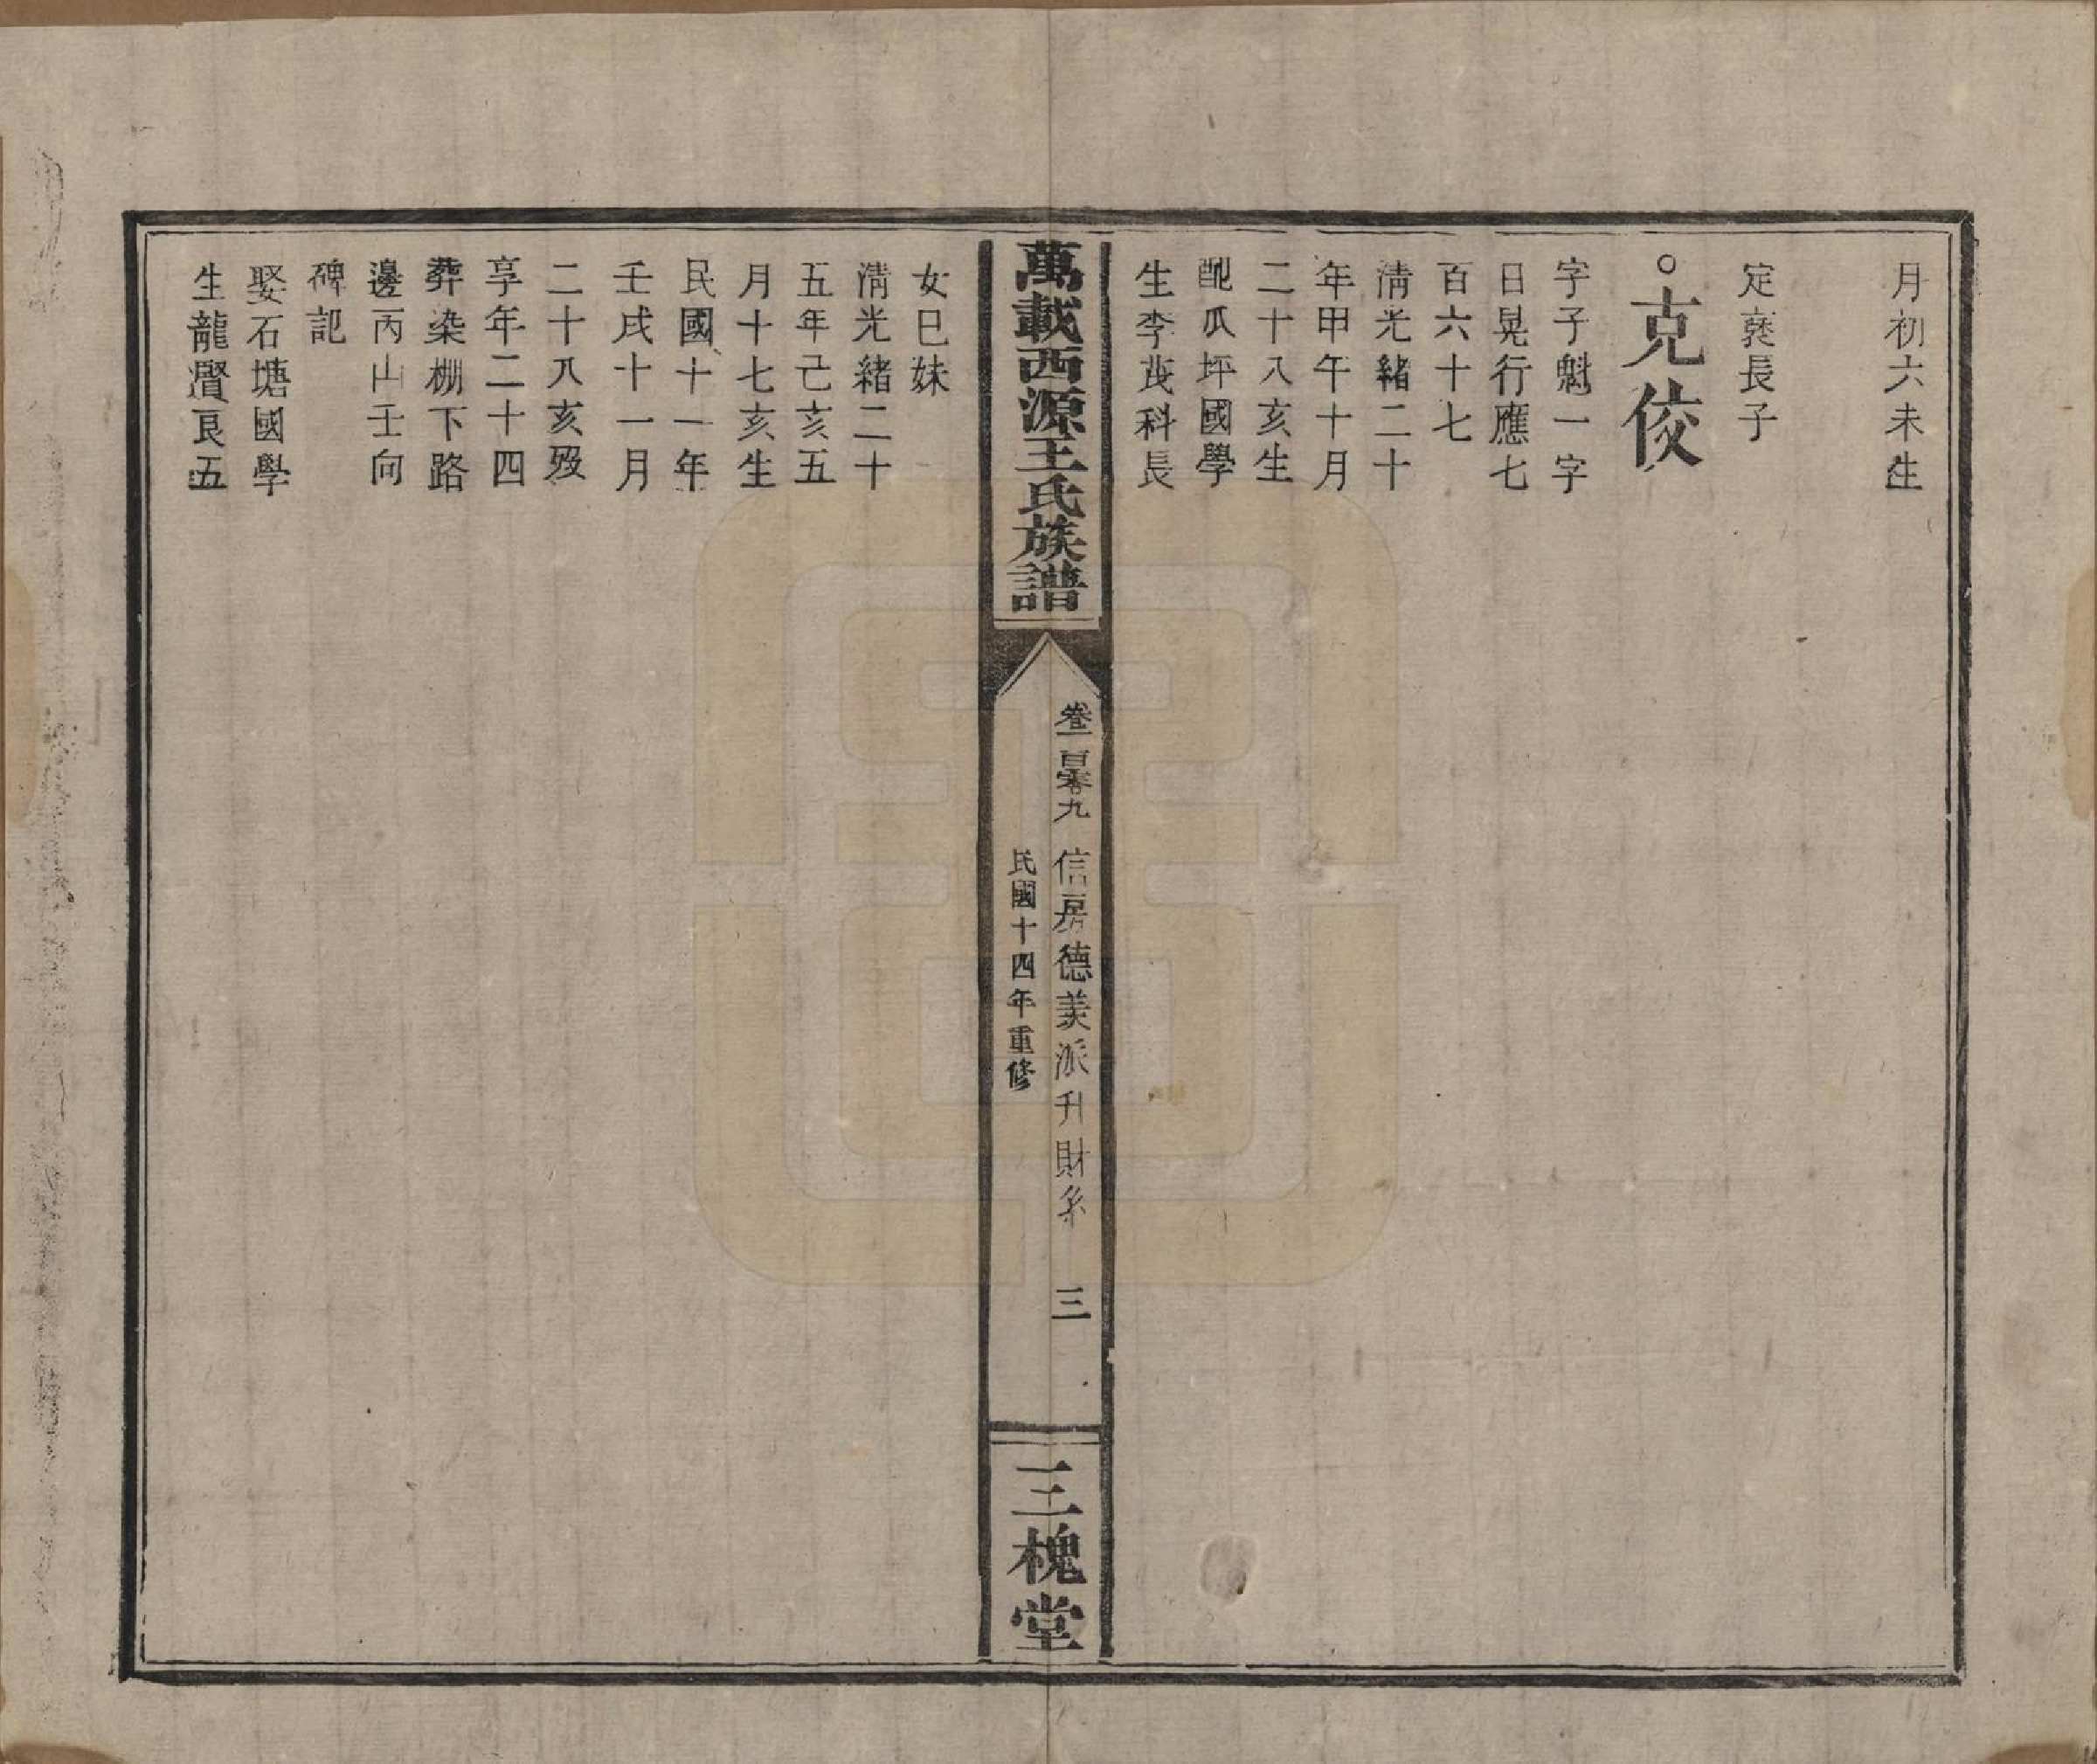 月初六未生
定蕤長子
○克佼
字子魁一字
日晃行應七
百六十七
淸光緖二十
年甲午十月
二十八亥生
配瓜坪國學
生李茂科長
萬載西源王氏族譜
卷一百零九 信房德美派升財系 三
民國十四年重修
三槐堂
女巳妹
淸光緖二十
五年己亥五
月十七亥生
民國十一年
壬戌十一月
二十八亥歿
享年二十四
葬染棚下路
邊丙山壬向
碑記
娶石塘國學
生龍賢良五